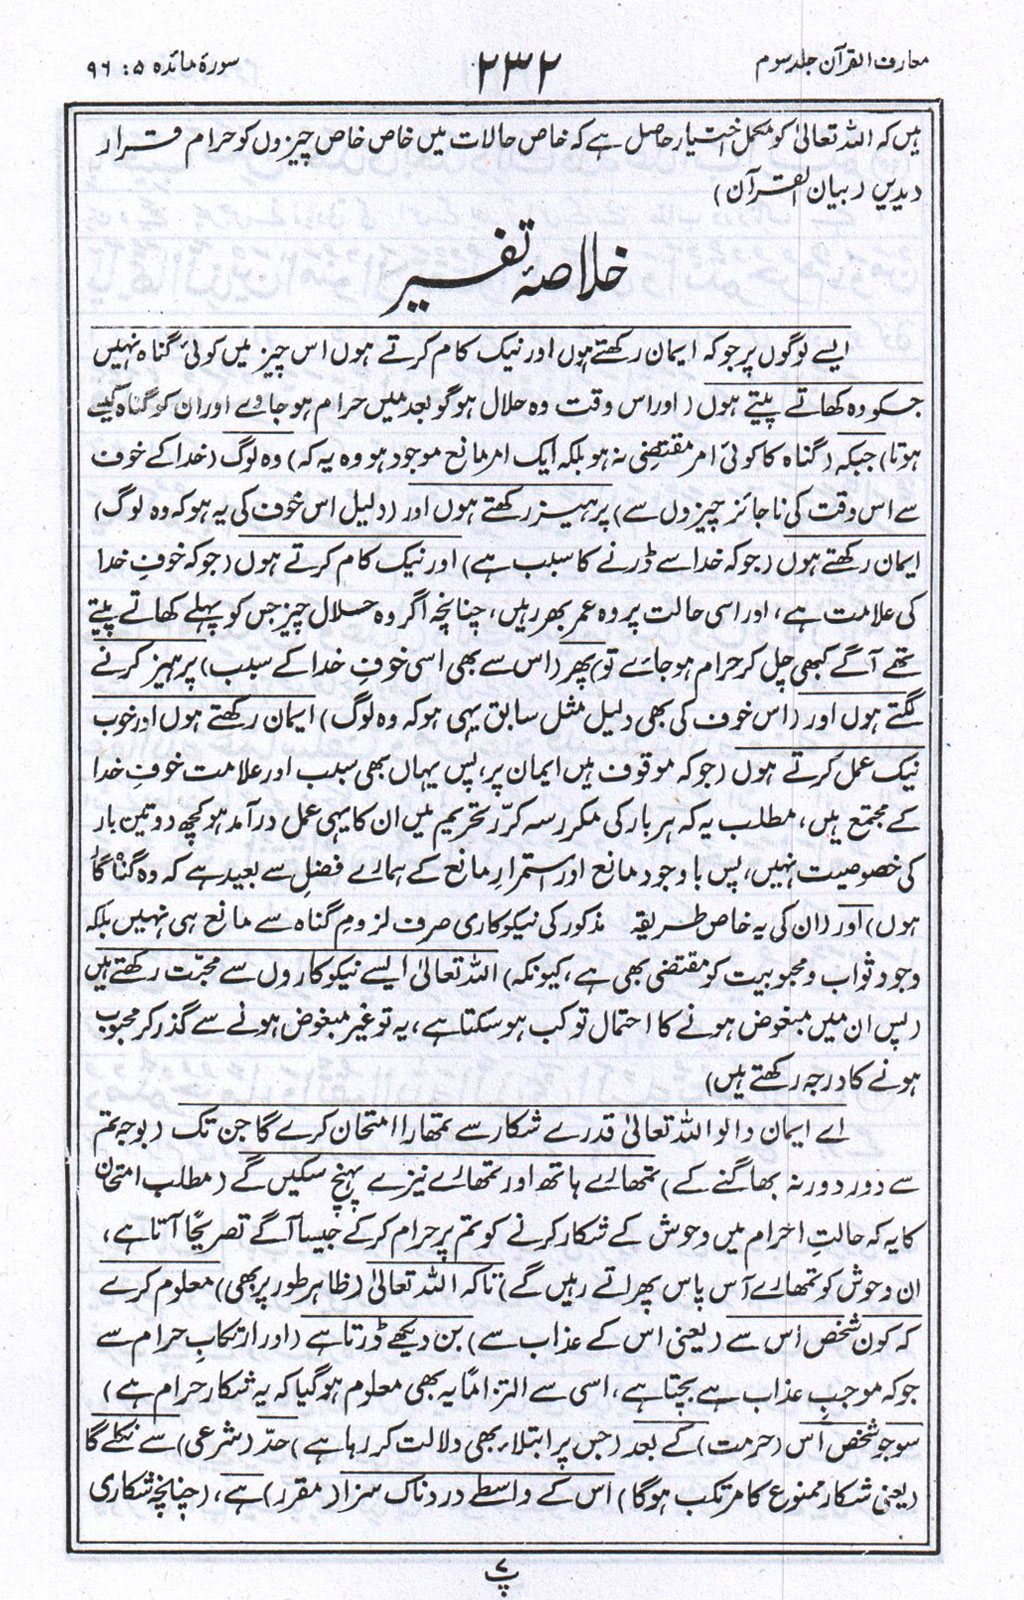 معارف القرآن جلد سوم
۲۳۲
سورۂ مائدہ ۵ : ۹۶
ہیں کہ اللہ تعالیٰ کو مکمل اختیار حاصل ہے کہ خاص حالات میں خاص خاص چیزوں کو حرام قرار
دیدیں (بیان القرآن)
خلاصۂ تفسیر
ایسے لوگوں پر جو کہ ایمان رکھتے ہوں اور نیک کام کرتے ہوں اس چیز میں کوئی گناہ نہیں
جسکو وہ کھاتے پیتے ہوں (اور اس وقت وہ حلال ہو گو بعد میں حرام ہو جاوے اور ان کو گناہ کیسے
ہوتا) جبکہ (گناہ کا کوئی امر مقتضِی نہ ہو بلکہ ایک امر مانع موجود ہو وہ یہ کہ) وہ لوگ (خدا کے خوف
سے اس وقت کی ناجائز چیزوں سے) پرہیز رکھتے ہوں اور (دلیل اس خوف کی یہ ہو کہ وہ لوگ)
ایمان رکھتے ہوں (جو کہ خدا سے ڈرنے کا سبب ہے) اور نیک کام کرتے ہوں (جو کہ خوفِ خدا
کی علامت ہے، اور اسی حالت پر وہ عمر بھر رہیں، چنانچہ اگر وہ حلال چیز جس کو پہلے کھاتے پیتے
تھے آگے کبھی چل کر حرام ہو جائے تو) پھر (اس سے بھی اسی خوفِ خدا کے سبب) پرہیز کرنے
لگتے ہوں اور (اس خوف کی بھی دلیل مثل سابق یہی ہو کہ وہ لوگ) ایمان رکھتے ہوں اور خوب
نیک عمل کرتے ہوں (جو کہ موقوف ہیں ایمان پر، پس یہاں بھی سبب اور علامت خوفِ خدا
کے مجتمع ہیں، مطلب یہ کہ ہر بار کی مکرر سہ کرّر تحریم میں ان کا یہی عمل درآمد ہو کچھ دو تین بار
کی خصوصیت نہیں، پس باوجود مانع اور استمرارِ مانع کے ہمارے فضل سے بعید ہے کہ وہ گناہگار
ہوں) اور (ان کی یہ خاص طریقہ مذکور کی نیکوکاری صرف لزومِ گناہ سے مانع ہی نہیں بلکہ
وجودِ ثواب و محبوبیت کو مقتضی بھی ہے، کیونکہ) اللہ تعالیٰ ایسے نیکوکاروں سے محبّت رکھتے ہیں
(پس ان میں مبغوض ہونے کا احتمال تو کب ہو سکتا ہے، یہ تو غیر مبغوض ہونے سے گذر کر محبوب
ہونے کا درجہ رکھتے ہیں)
اے ایمان والو اللہ تعالیٰ قدرے شکار سے تمھارا امتحان کرے گا جن تک (بوجہ تم
سے دور دور نہ بھاگنے کے) تمھارے ہاتھ اور تمھارے نیزے پہنچ سکیں گے (مطلب امتحان
کا یہ کہ حالتِ احرام میں وحوش کے شکار کرنے کو تم پر حرام کر کے جیسا آگے تصریحًا آتا ہے،
ان وحوش کو تمھارے آس پاس پھراتے رہیں گے) تاکہ اللہ تعالیٰ (ظاہر طور پر بھی) معلوم کرے
کہ کون شخص اس سے (یعنی اس کے عذاب سے) بن دیکھے ڈرتا ہے (اور ارتکابِ حرام سے
جو کہ موجبِ عذاب ہے بچتا ہے، اسی سے التزامًا یہ بھی معلوم ہو گیا کہ یہ شکار حرام ہے)
سو جو شخص اس (حرمت) کے بعد (جس پر ابتلاء بھی دلالت کر رہا ہے) حدّ (شرعی) سے نکلے گا
(یعنی شکار ممنوع کا مرتکب ہوگا) اس کے واسطے دردناک سزا (مقرر) ہے، (چنانچہ شکاری
پ ۷